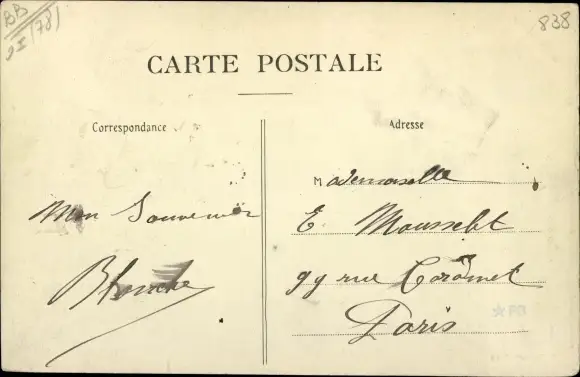 BB
(78)
838
CARTE POSTALE
Correspondance
Adresse
Mademoiselle
Mon Souvenir
E. Mousselet
Blanche
99 rue
Paris